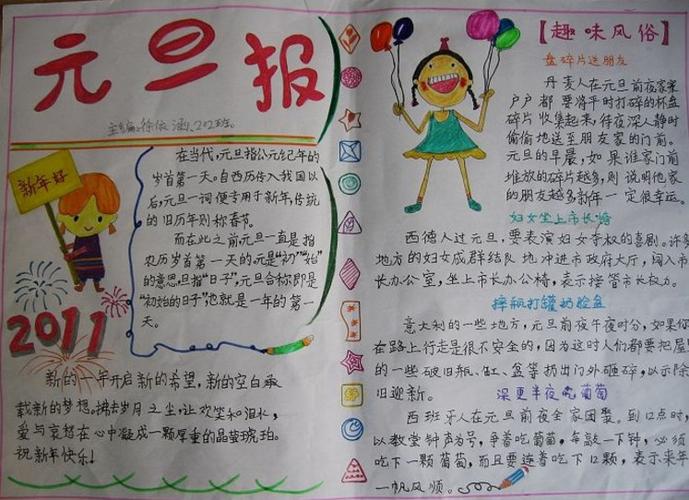 元旦报
主编:徐依涵、202班。
新年好
在当代,元旦指公元纪年的
岁首第一天。自西历传入我国以
后,元旦一词便专用于新年,传统
的旧历年则称春节。
而在此之前元旦一直是指
农历岁首第一天的元是“初”“始”
的意思,旦指“日子”,元旦合称即是
“初始的日子”也就是一年的第一
天。
2011
新的一年开启新的希望,新的空白承
载新的梦想。拂去岁月之尘,让欢笑和泪水,
爱与哀愁在心中凝成一颗厚重的晶莹琥珀。
祝新年快乐!
【趣味风俗】
盘碎片送朋友
丹麦人在元旦前夜家家
户户都要将平时打碎的杯盘
碎片收集起来,待夜深人静时
偷偷地送至朋友家的门前。
元旦的早晨,如果谁家门前
堆放的碎片越多,则说明他家
的朋友越多新年一定很幸运。
妇女坐上市长椅
西德人过元旦,要表演妇女夺权的喜剧。许多
地方的妇女成群结队地冲进市政府大厅,闯入市
长办公室,坐上市长办公椅,表示接管市长权力。
摔瓶打罐扔脸盆
意大利的一些地方,元旦前夜午夜时分,如果你
在路上行走是很不安全的,因为这时人们都要把屋
的一些破旧瓶、缸、盆等扔出门外砸碎,以示除
旧迎新。
深更半夜吃葡萄
西班牙人在元旦前夜全家团聚。到12点时,
以教堂钟声为号,争着吃葡萄,每敲一下钟,必须
吃下一颗葡萄,而且要连着吃下12颗,表示来年
一帆风顺。